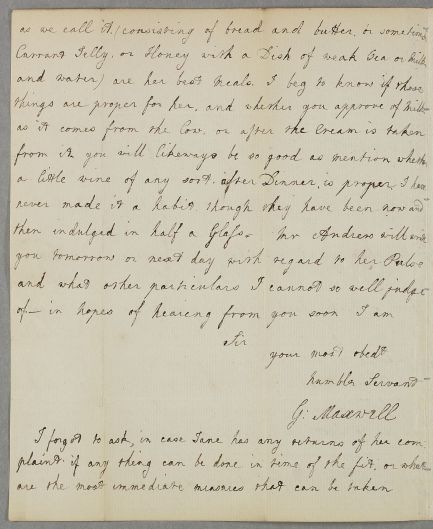 as we call it (consisting of bread and butter, or sometimes
Currant Jelly, or Honey with a Dish of weak Tea or Milk
and water) are her best meals. I beg to know if those
things are proper for her, and whether you approve of Milk
as it comes from the Cow, or after the Cream is taken
from it you will likeways be so good as mention whether
a little wine of any sort after Dinner, is proper, I have
never made it a habit though they have been now and
then indulged in half a Glass. Mr Andrew will write
you tomorrow or next day with regard to her Pulse
and what other particulars I cannot so well judge
of — in hopes of hearing from you soon I am
Sir
your most obedt
humble Servant
G: Maxwell
I forgot to ask, in case Jane has any returns of her com
plaint if any thing can be done in time of the fit, or what
are the most immediate measures that can be taken